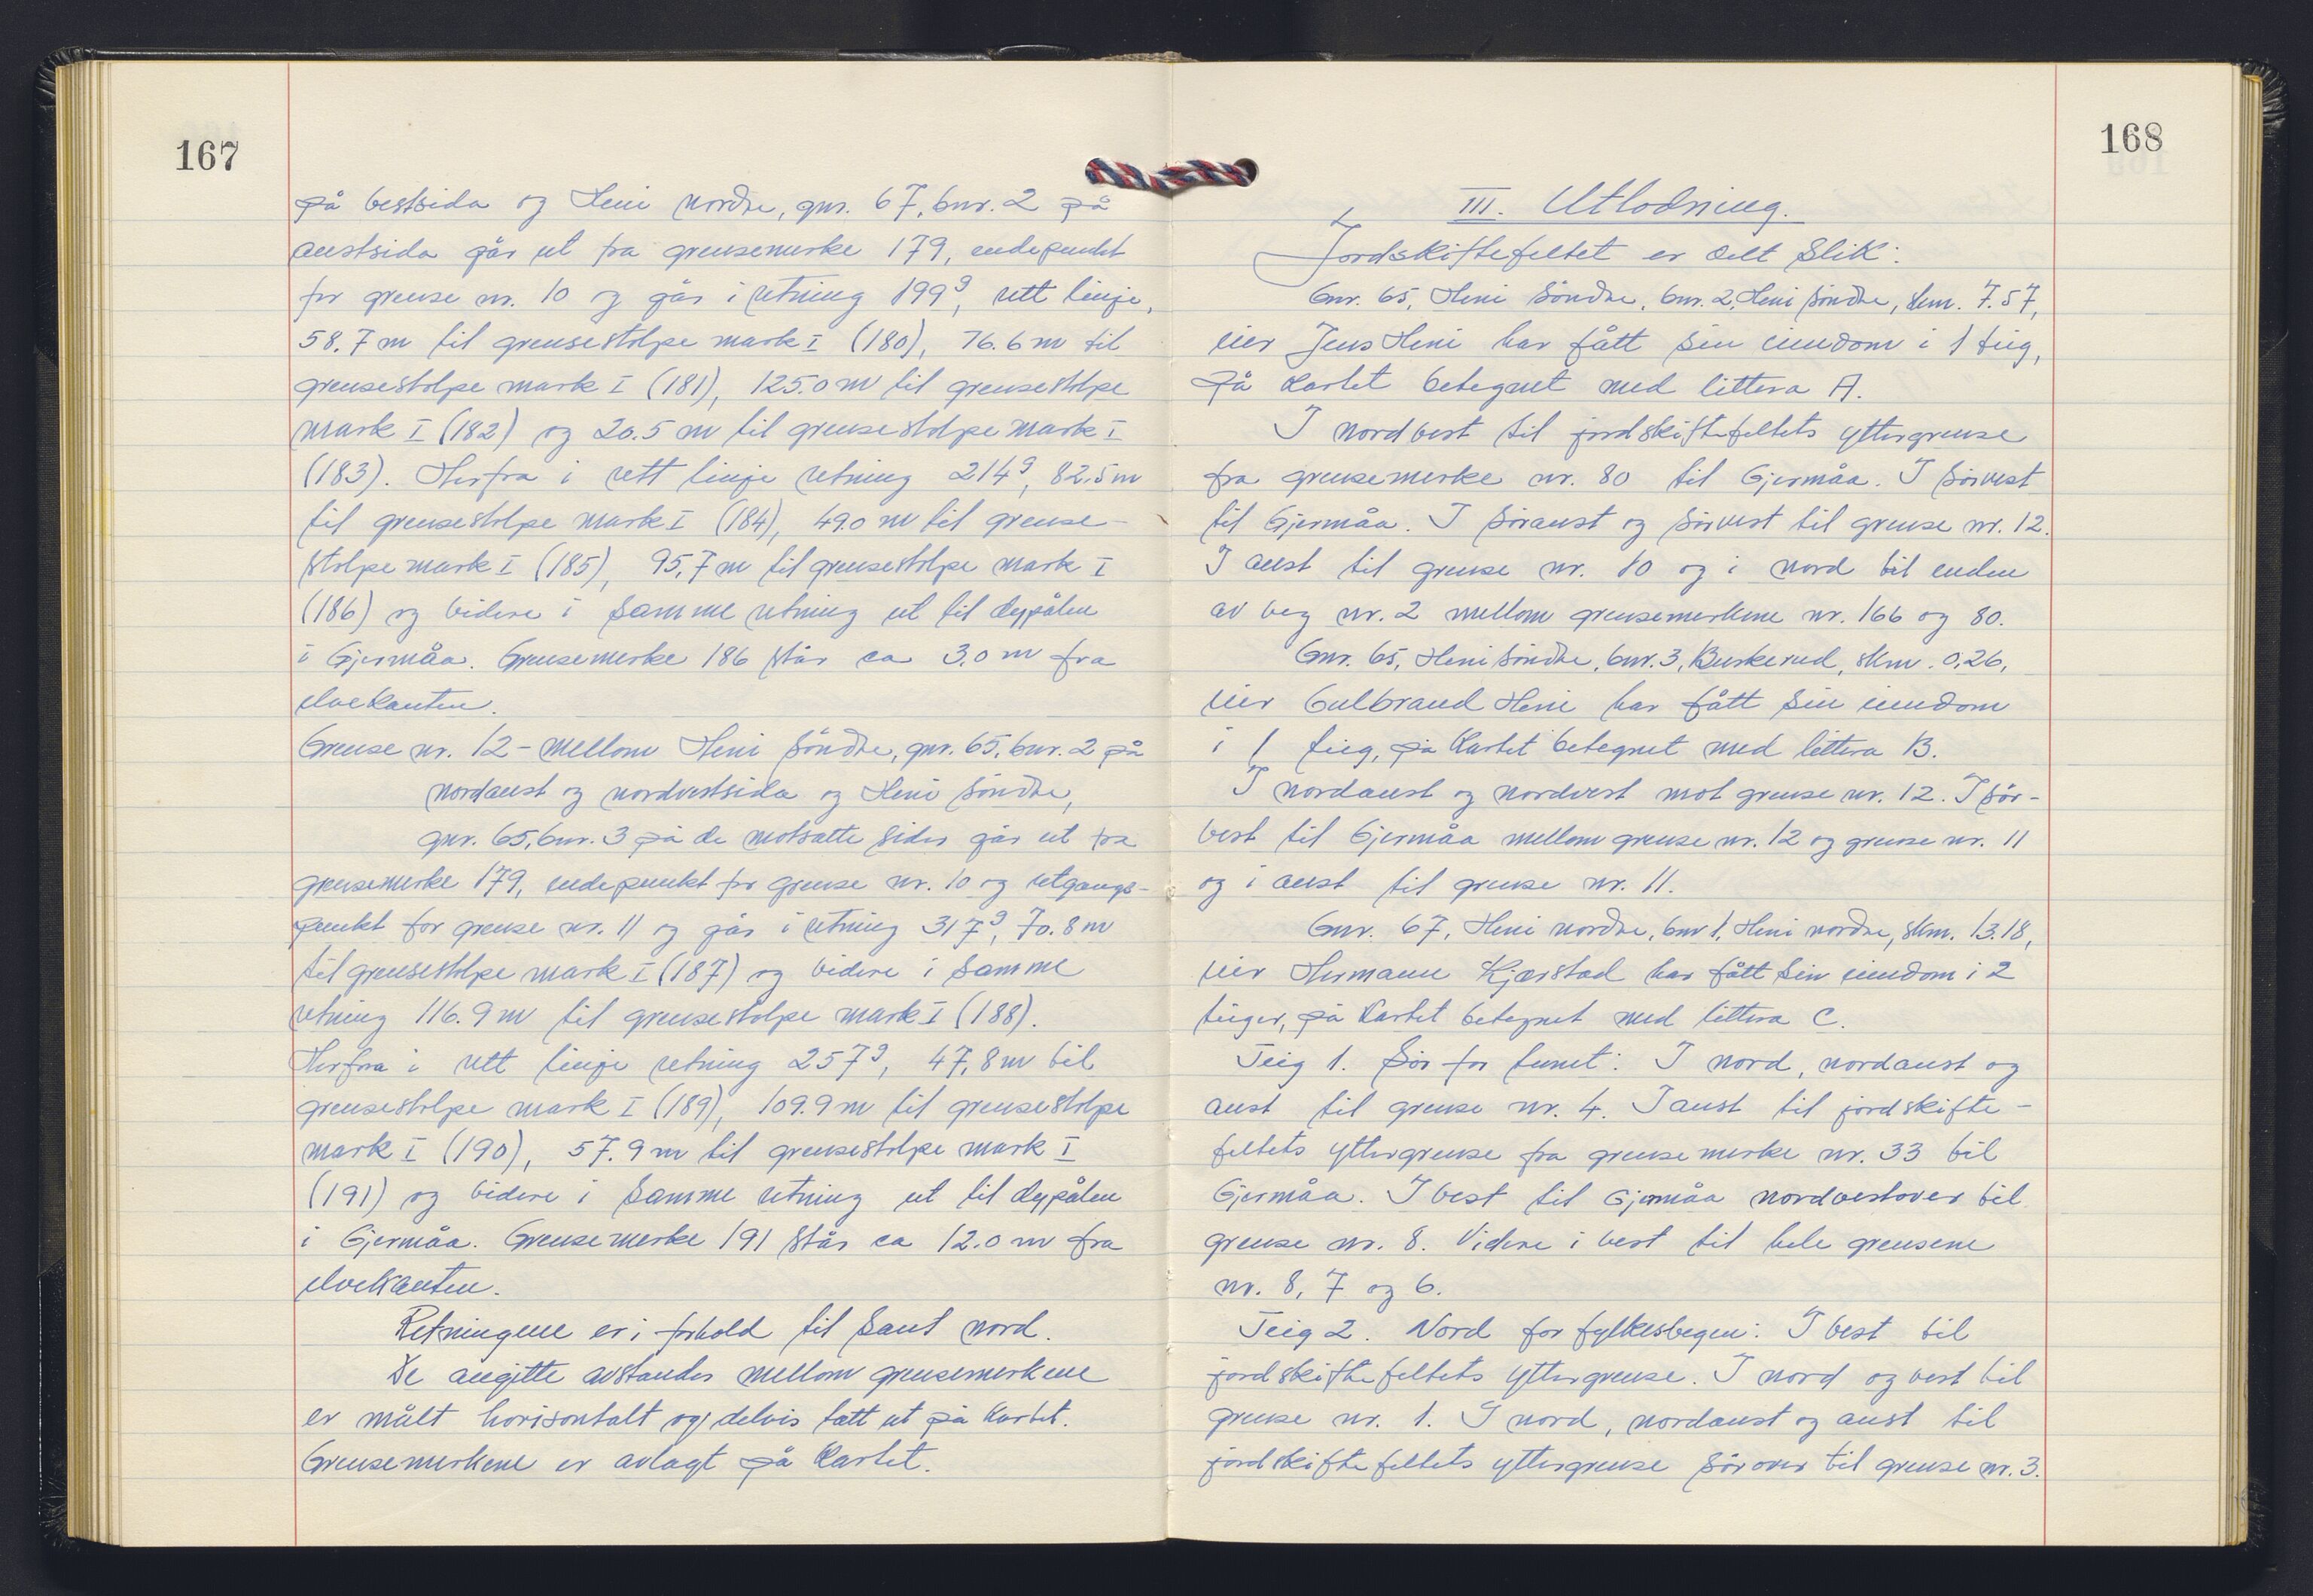 167
på vestsida og Heni nordre, gnr. 67, bnr. 2 på
austsida går ut fra grensemerke 179, endepunkt
for grense nr. 10 og går i retning 199g, rett linje,
58.7 m til grensestolpe mark I (180), 76.6 m til
grensestolpe mark I (181), 125.0 m til grensestolpe
mark I (182) og 20.5 m til grensestolpe mark I
(183). Herfra i rett linje retning 214g, 82.5 m
til grensestolpe mark I (184), 49.0 m til grense-
stolpe mark I (185), 95.7 m til grensestolpe mark I
(186) og videre i samme retning ut til dypålen
i Gjermåa. Grensemerke 186 står ca 3.0 m fra
elvekanten.
Grense nr. 12 - mellom Heni søndre, gnr. 65, bnr. 2 på
nordaust og nordvestsida og Heni søndre,
gnr. 65, bnr. 3 på de motsatte sider går ut fra
grensemerke 179, endepunkt for grense nr. 10 og utgangs-
punkt for grense nr. 11 og går i retning 317g, 70.8 m
til grensestolpe mark I (187) og videre i samme
retning 116.9 m til grensestolpe mark I (188).
Herfra i rett linje retning 257g, 47,8 m til
grensestolpe mark I (189), 109.9 m til grensestolpe
mark I (190), 57.9 m til grensestolpe mark I
(191) og videre i samme retning ut til dypålen
i Gjermåa. Grensemerke 191 står ca 12.0 m fra
elvekanten.
Retningene er i forhold til sant nord.
De angitte avstander mellom grensemerkene
er målt horisontalt og delvis tatt ut på kartet.
Grensemerkene er avlagt på kartet.
168
III. Utlodning.
Jordskiftefeltet er delt slik:
Gnr. 65, Heni Søndre, bnr. 2, Heni søndre, skm. 7.57,
eier Jens Heni har fått sin eiendom i 1 teig,
på kartet betegnet med littera A.
I nordvest til jordskiftefeltets yttergrense
fra grensemerke nr. 80 til Gjermåa. I sørvest
til Gjermåa. I søraust og sørvest til grense nr. 12.
I aust til grense nr. 10 og i nord til enden
av veg nr. 2 mellom grensemerkene nr. 166 og 80.
Gnr. 65, Heni søndre, bnr. 3, Buskerud, skm. 0,26,
eier Gulbrand Heni har fått sin eiendom
i 1 teig, på kartet betegnet med littera B.
I nordaust og nordvest mot grense nr. 12. I sør-
vest til Gjermåa mellom grense nr. 12 og grense nr. 11
og i aust til grense nr. 11.
Gnr. 67, Heni nordre, bnr 1, Heni nordre, skm. 13.18,
eier Hermann Kjærstad har fått sin eiendom i 2
teiger, på kartet betegnet med littera C.
Teig 1. Sør for tunet: I nord, nordaust og
aust til grense nr. 4. I aust til jordskifte-
feltets yttergrense fra grensemerke nr. 33 til
Gjermåa. I vest til Gjermåa nordvestover til
grense nr. 8. Videre i vest til hele grensene
nr. 8, 7 og 6.
Teig 2. Nord for fylkesvegen: I vest til
jordskiftefeltets yttergrense. I nord og vest til
grense nr. 1. I nord, nordaust og aust til
jordskiftefeltets yttergrense sørover til grense nr. 3.